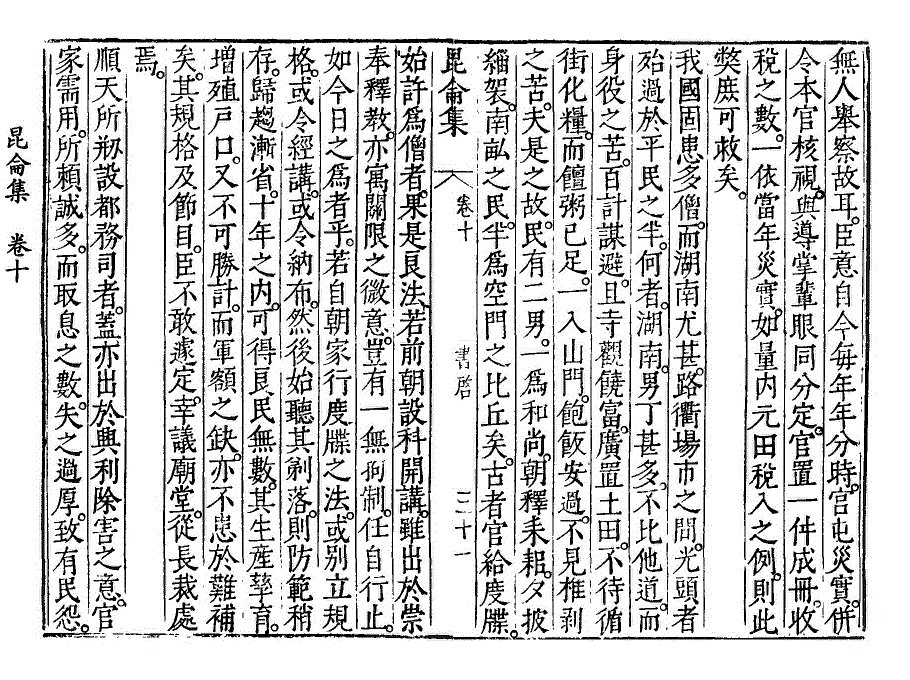 無人舉察故耳。臣意自今每年年分時。官屯災實。併
令本官核視。與導掌輩眼同分定。官置一件成冊。收
稅之數。一依當年災實。如量內元田稅入之例。則此
獘庶可救矣。
我國固患多僧。而湖南尤甚。路衢場市之間。光頭者
殆過於平民之半。何者。湖南。男丁甚多。不比他道。而
身役之苦。百計謀避。且寺觀饒富。廣置土田。不待循
街化糧。而饘粥已足。一入山門。飽飯安過。不見椎剥
之苦。夫是之故。民有二男。一爲和尚。朝釋耒耜。夕披
緇袈。南畝之民。半爲空門之比丘矣。古者官給度牒。
昆侖集 卷十 書啓 二十一
始許爲僧者。果是良法。若前朝設科開講。雖出於崇
奉釋教。亦寓關限之微意。豈有一無拘制。任自行止。
如今日之爲者乎。若自朝家行度牒之法。或別立規
格。或令經講。或令納布。然後始聽其剃落。則防範稍
存。歸趨漸省。十年之內。可得良民無數。其生産孶育。
增殖戶口。又不可勝計。而軍額之缺。亦不患於難補
矣。其規格及節目。臣不敢遽定。幸議廟堂。從長裁處
焉。
順天所刱設都務司者。蓋亦出於興利除害之意。官
家需用。所賴誠多。而取息之數。失之過厚。致有民怨。
昆侖集 卷十